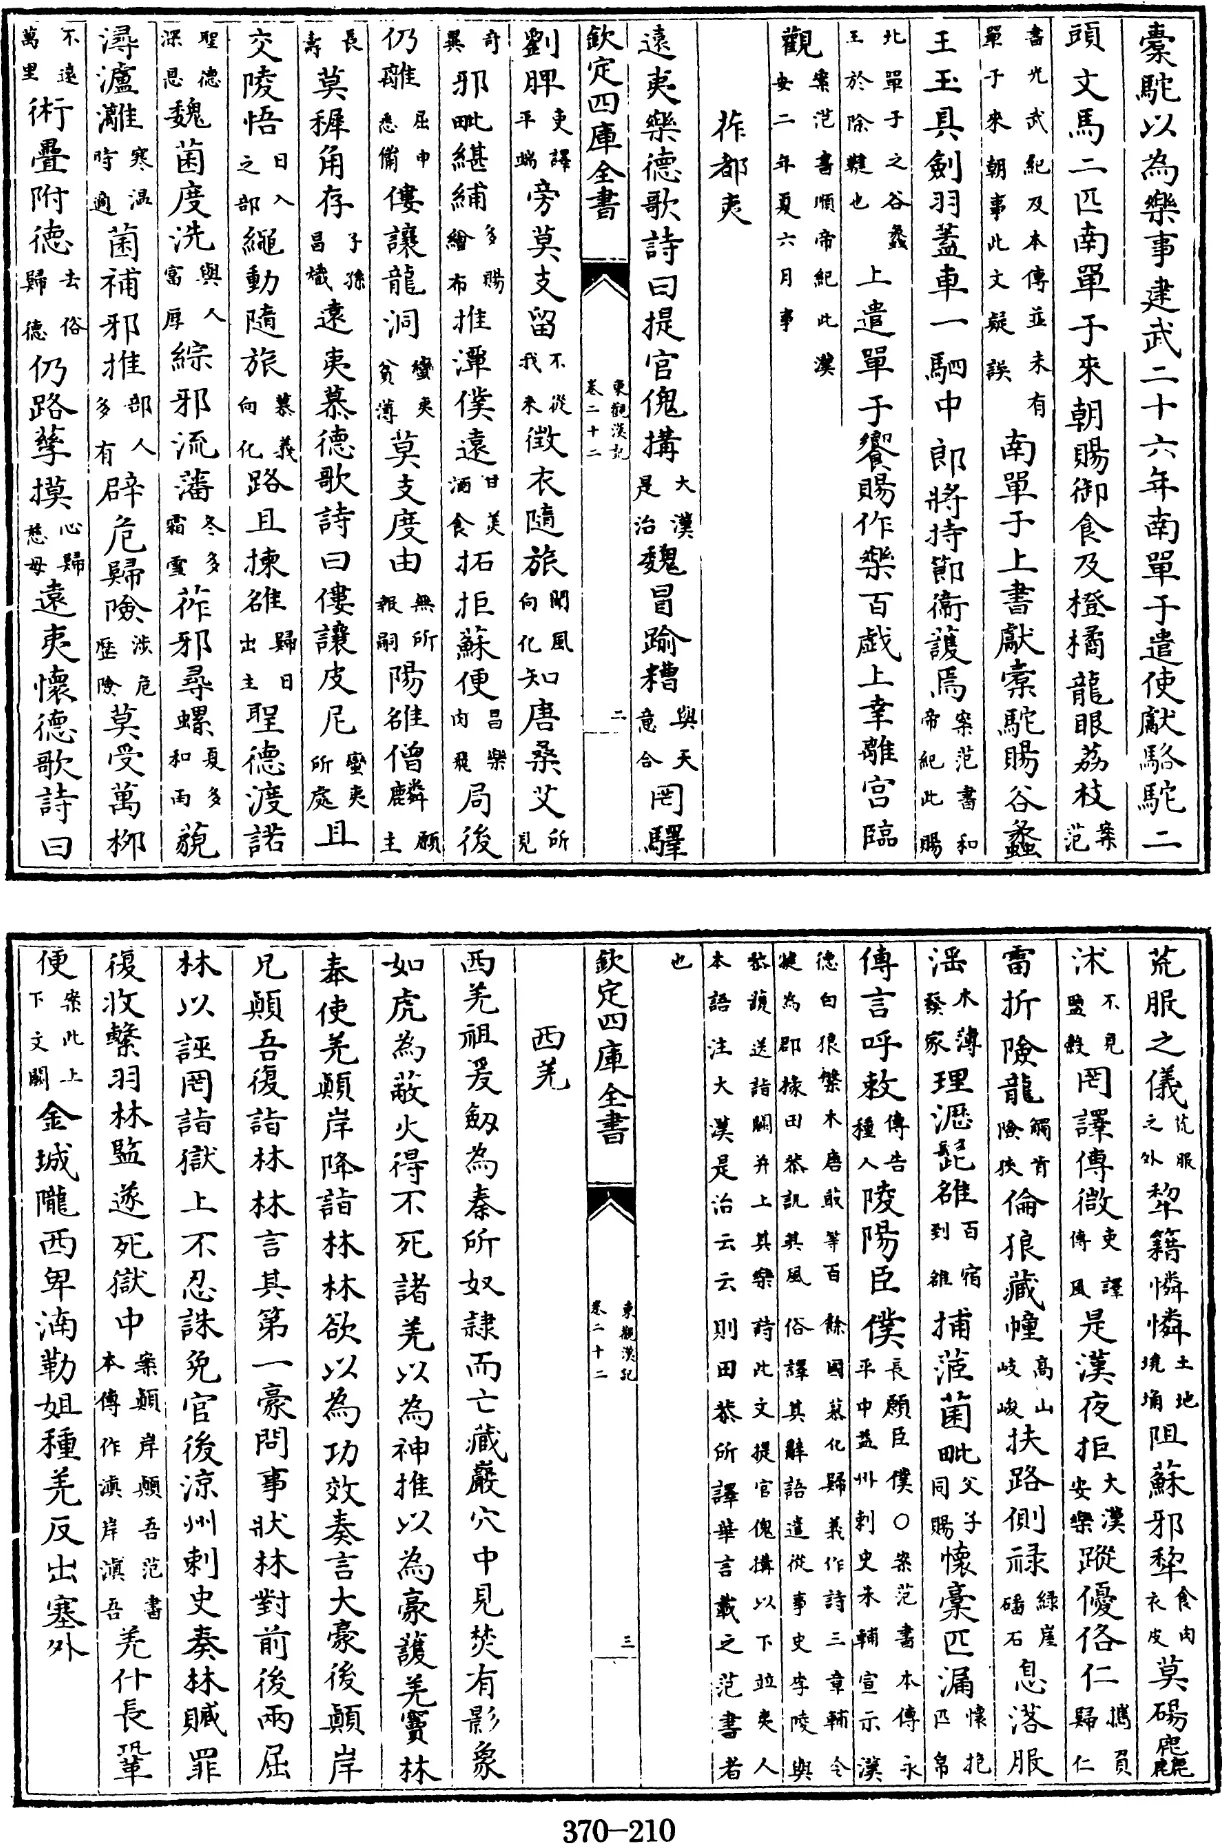 橐駝以為樂事建武二十六年南單于遣使獻駱駝二
頭文馬二匹南單于來朝賜御食及橙橘龍眼荔枝案范
書光武紀及本傳並未有單于來朝事此文疑誤南單于上書獻橐駝賜谷蠡
王玉具劍羽蓋車一駟中郎將持節衛護焉案范書和帝紀此賜
北單于之谷蠡王於除鞬也上遣單于饗賜作樂百戲上幸離宮臨
觀案范書順帝紀此漢安二年夏六月事
莋都夷
遠夷樂德歌詩曰提官傀搆大漢是治魏冒踰糟與天意合罔驛
欽定四庫全書
東觀漢記
卷二十二
二
劉脾吏譯平端旁莫支留不從我來徵衣隨旅聞風向化知唐桑艾所見
奇異邪毗䋎𦅻多賜繒布推潭僕遠甘美酒食拓拒蘇便昌樂肉飛局後
仍離屈申悉備僂讓龍洞蠻夷貧薄莫支度由無所報嗣陽雒僧麟願主
長壽莫穉角存子孫昌熾遠夷慕德歌詩曰僂讓皮尼蠻夷所處且
交陵悟日入之部繩動隨旅慕義向化路且揀雒歸日出主聖德渡諾
聖德深恩魏菌度洗與人富厚綜邪流藩冬多霜雪莋邪尋螺夏多和雨藐
潯瀘漓寒溫時適菌補邪推部人多有辟危歸險涉危歷險莫受萬柳
不遠萬里術疊附德去俗歸德仍路孳摸心歸慈母遠夷懷德歌詩曰
荒服之儀荒服之外犂籍憐憐土地墝埆阻蘇邪犂食肉衣皮莫碭麤
沐不見鹽穀罔譯傳微吏譯傳風是漢夜拒大漢安樂蹤優佫仁攜負歸仁
雷折險龍觸冒險狹倫狼藏幢高山岐峻扶路側祿緣崖磻石息落服
淫木薄發家理瀝髭雒百宿到雒捕茞菌毗父子同賜懷槀匹漏懷抱匹帛
傳言呼敕傳告種人陵陽臣僕長願臣僕○案范書本傳永平中益州刺史朱輔宣示漢
德白狼槃木唐菆等百餘國慕化歸義作詩三章輔令犍為郡掾田恭訊其風俗譯其辭語遣從事史李陵與
恭護送詣闕并上其樂詩此文提官傀搆以下並夷人本語注大漢是治云云則田恭所譯華言載之范書者
也
欽定四庫全書
東觀漢記
卷二十二
三
西羌
西羌祖爰劔為秦所奴隷而亡藏巖穴中見焚有影象
如虎為蔽火得不死諸羌以為神推以為豪護羌竇林
奉使羌顛岸降詣林林欲以為功效奏言大豪後顛岸
兄顛吾復詣林林言其第一豪問事狀林對前後兩屈
林以誣罔詣獄上不忍誅免官後涼州刺史奏林贓罪
復收繫羽林監遂死獄中案顛岸顛吾范書本傳作滇岸滇吾羌什長鞏
便案此上下文闕金城隴西卑湳勒姐種羌反出塞外
370-210